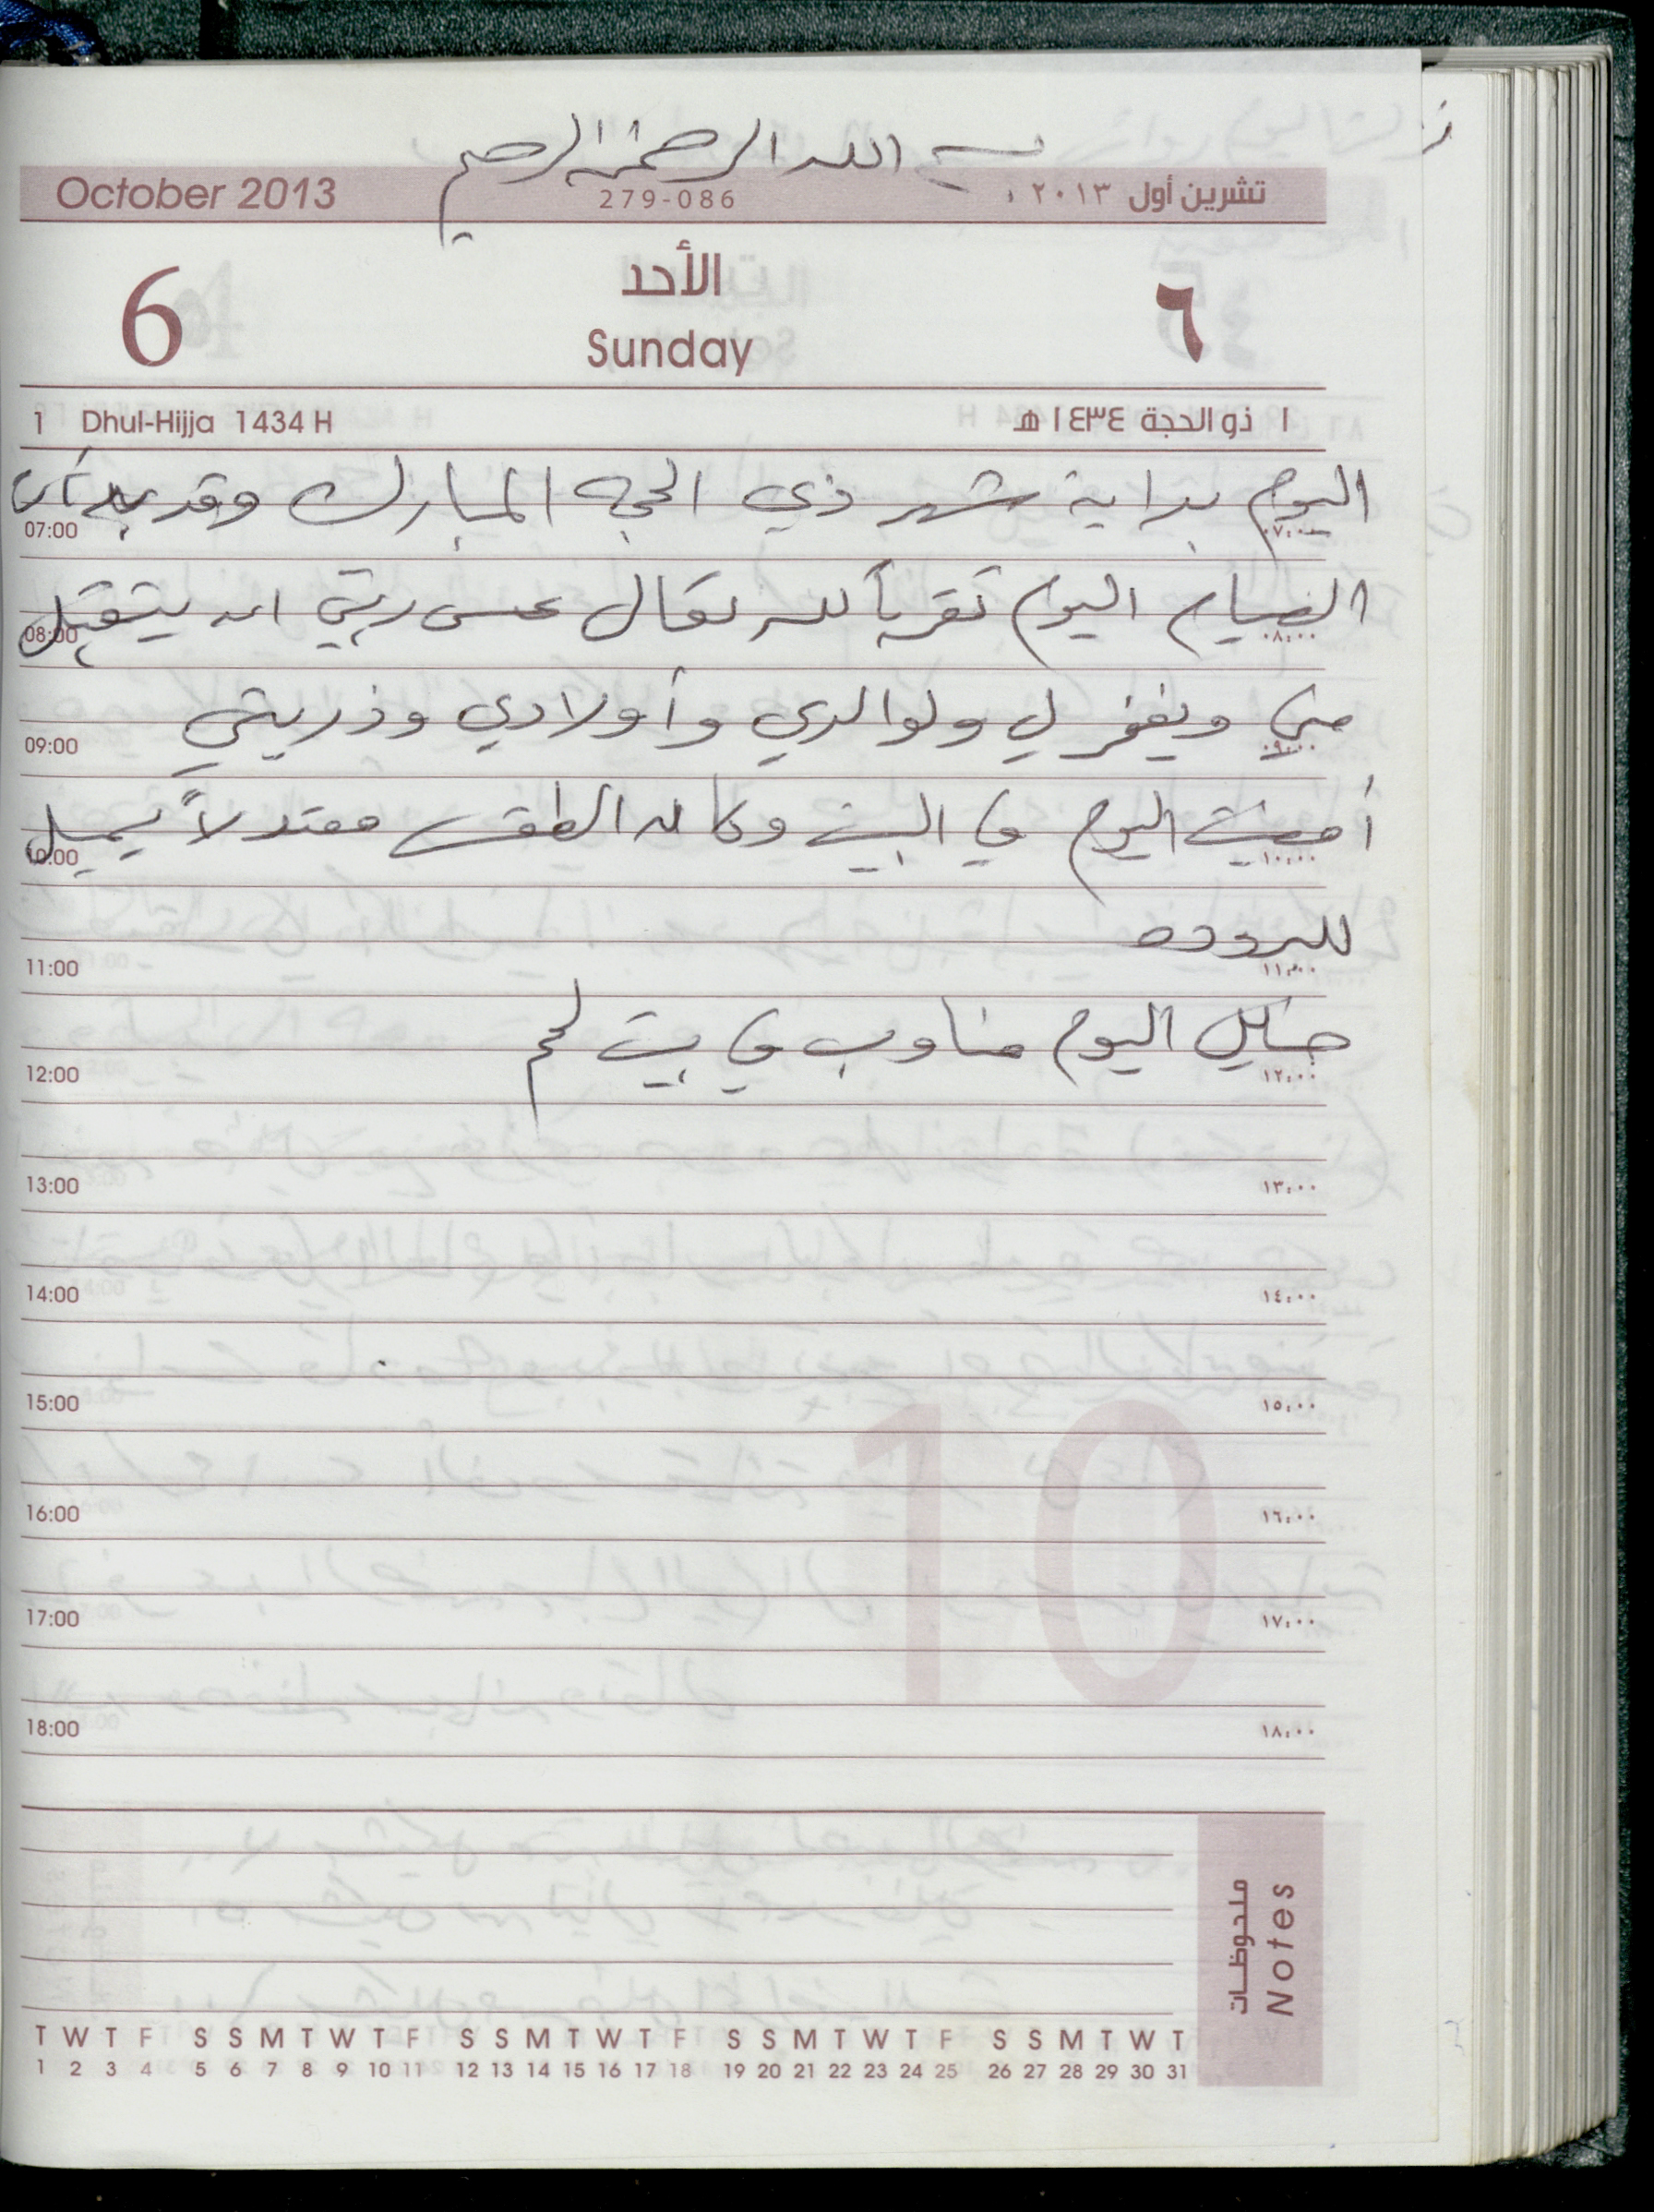 بسم الله الرحمن الرحيم
October 2013 279-086 تشرين أول ٢٠١٣
6 الأحد ٦
Sunday
1 Dhul-Hijja 1434 H ١ ذو الحجة ١٤٣٤ هـ
اليوم بداية شهر ذي الحجه المبارك وقد بدأت
07:00 ٠٧:٠٠
الصيام اليوم تقرباً لله تعالى عسى ربي ان يتقبل
08:00 ٠٨:٠٠
مني ويغفر لي ولوالدي وأولادي وذريتي
09:00 ٠٩:٠٠
أمضيت اليوم في البيت وكان الطقس معتدلاً يميل
10:00 ١٠:٠٠
للبروده
11:00 ١١:٠٠
اليوم مناوب في بيت لحم
12:00 ١٢:٠٠
13:00 ١٣:٠٠
14:00 ١٤:٠٠
15:00 ١٥:٠٠
10
16:00 ١٦:٠٠
17:00 ١٧:٠٠
18:00 ١٨:٠٠
ملحوظات
Notes
T W T F S S M T W T F S S M T W T F S S M T W T F S S M T W T
1 2 3 4 5 6 7 8 9 10 11 12 13 14 15 16 17 18 19 20 21 22 23 24 25 26 27 28 29 30 31